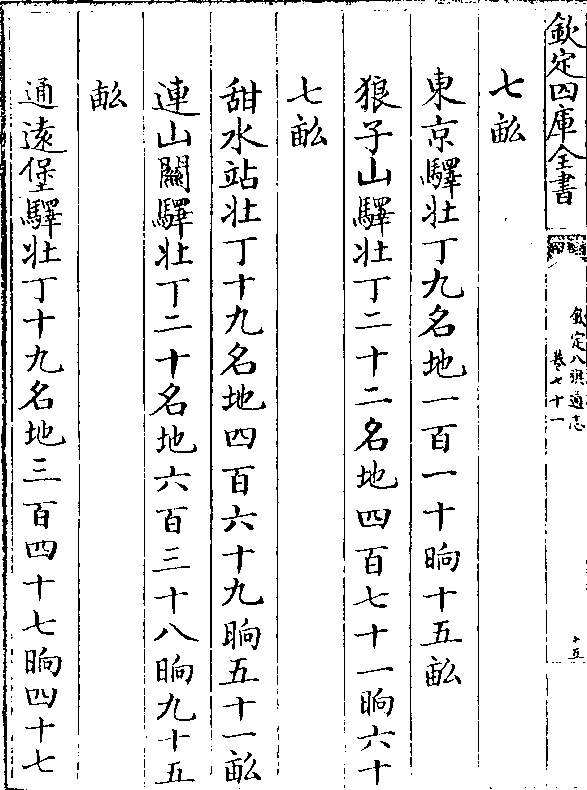 欽定四庫全書
欽定八旗通志
卷七十一
十五
七畝
東京驛壯丁九名地一百一十晌十五畝
狼子山驛壯丁二十二名地四百七十一晌六十
七畝
甜水站壯丁十九名地四百六十九晌五十一畝
連山關驛壯丁二十名地六百三十八晌九十五
畝
通遠堡驛壯丁十九名地三百四十七晌四十七